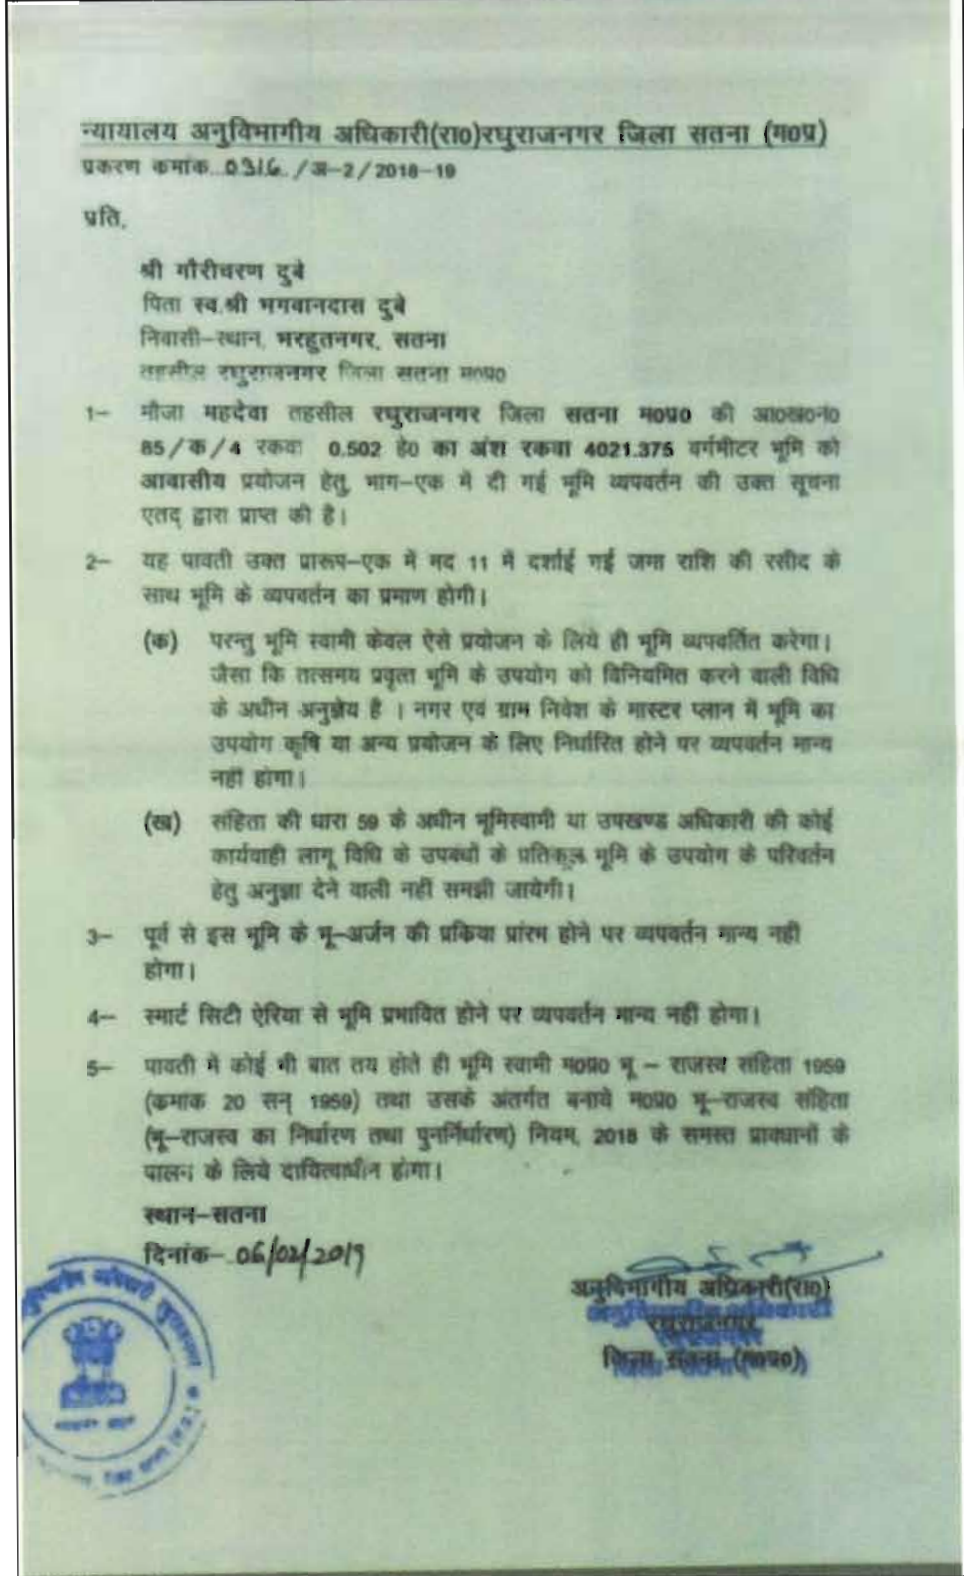 न्यायालय अनुविभागीय अधिकारी(रा0)रघुराजनगर जिला सतना (म0प्र)
प्रकरण कमांक 0316 /अ-2/2018-19
प्रति,
श्री गौरीचरण दुबे
पिता स्व.श्री भगवानदास दुबे
निवासी-स्थान, भरहुतनगर, सतना
तहसील रघुराजनगर जिला सतना म0प्र0
1- मौजा महदेवा तहसील रघुराजनगर जिला सतना म0प्र0 की आ0ख0नं0
85/क/4 रकवा 0.502 हे0 का अंश रकवा 4021.375 वर्गमीटर भूमि को
आवासीय प्रयोजन हेतु, भाग-एक में दी गई भूमि व्यपवर्तन की उक्त सूचना
एतद् द्वारा प्राप्त की है।
2- यह पावती उक्त प्रारूप-एक में मद 11 में दर्शाई गई जमा राशि की रसीद के
साथ भूमि के व्यपवर्तन का प्रमाण होगी।
(क) परन्तु भूमि स्वामी केवल ऐसे प्रयोजन के लिये ही भूमि व्यपवर्तित करेगा।
जैसा कि तत्समय प्रवृत्त भूमि के उपयोग को विनियमित करने वाली विधि
के अधीन अनुज्ञेय है । नगर एवं ग्राम निवेश के मास्टर प्लान में भूमि का
उपयोग कृषि या अन्य प्रयोजन के लिए निर्धारित होने पर व्यपवर्तन मान्य
नही होगा।
(ख) संहिता की धारा 59 के अधीन भूमिस्वामी या उपखण्ड अधिकारी की कोई
कार्यवाही लागू विधि के उपबंधों के प्रतिकूल भूमि के उपयोग के परिवर्तन
हेतु अनुज्ञा देने वाली नही समझी जायेगी।
3- पूर्व से इस भूमि के भू-अर्जन की प्रकिया प्रांरभ होने पर व्यपवर्तन मान्य नही
होगा।
4- स्मार्ट सिटी ऐरिया से भूमि प्रभावित होने पर व्यपवर्तन मान्य नही होगा।
5- पावती में कोई भी बात तय होते ही भूमि स्वामी म0प्र0 भू - राजस्व संहिता 1959
(कमाक 20 सन् 1959) तथा उसके अंतर्गत बनाये म0प्र0 भू-राजस्व संहिता
(भू-राजस्व का निर्धारण तथा पुनर्निर्धारण) नियम, 2018 के समस्त प्रावधानों के
पालन के लिये दायित्वाधीन होगा।
स्थान-सतना
दिनांक- 06/02/2019
अनुविभागीय अधिकारी(रा0)
रघुराजनगर
जिला सतना (म0प्र0)